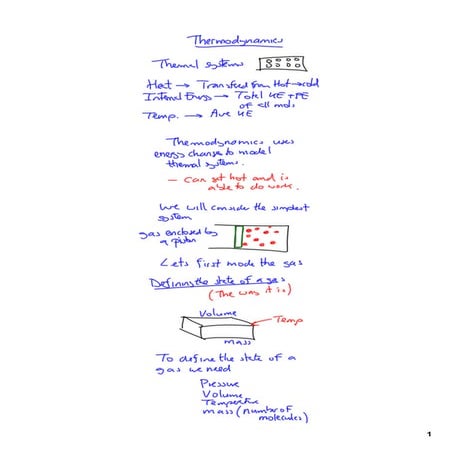 Thermodynamics
Thermal systems
Heat → Transfeed from Hot → cold
Internal Energy → Total KE + PE
of all mols
Temp. → Ave KE
Thermodynamics uses
energy changes to model
thermal systems.
- Can get hot and is
able to do work.
We will consider the simplest
system
gas enclosed by
a piston
Lets first mode the gas
Defining the state of a gas
(The way it is)
Volume
Temp
mass
To define the state of a
gas we need
Pressure
Volume
Temperature
mass (number of
molecules)
1